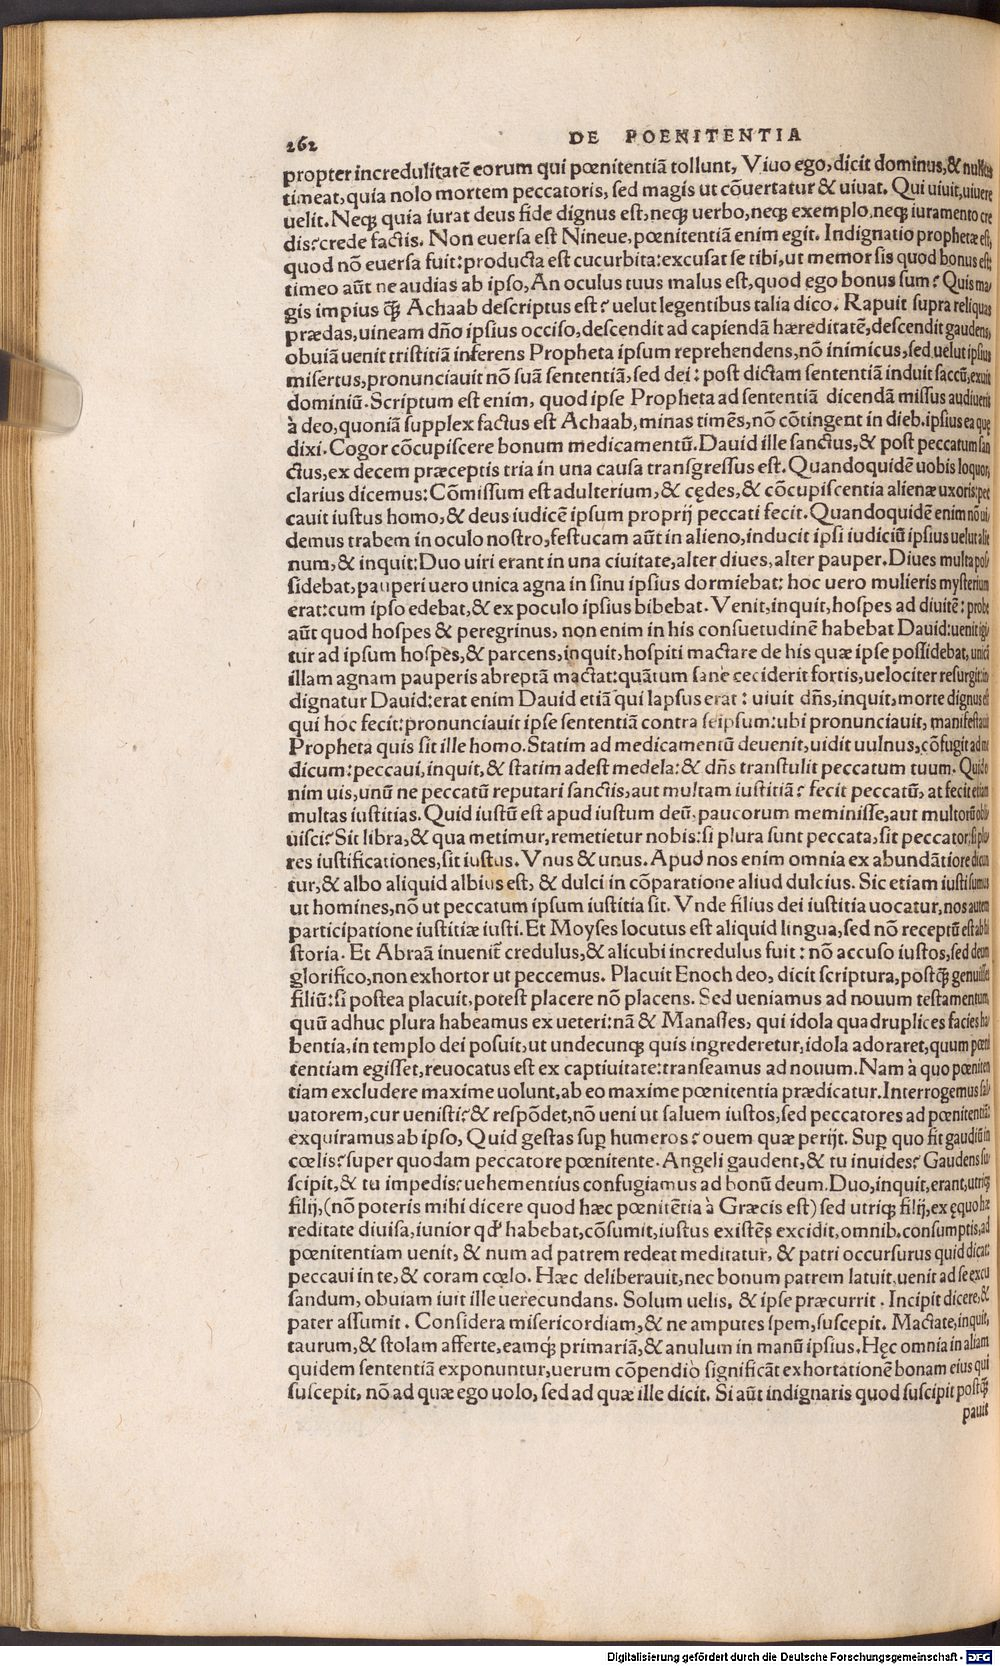 262 DE POENITENTIA
propter incredulitatē eorum qui pœnitentiā tollunt, Viuo ego, dicit dominus, & nullus
timeat, quia nolo mortem peccatoris, sed magis ut cōuertatur & uiuat. Qui uiuit, uiuere
uelit. Neqꝫ quia iurat deus fide dignus est, neqꝫ uerbo, neqꝫ exemplo, neqꝫ iuramento cre
dis: crede factis. Non euersa est Nineue, pœnitentiā enim egit. Indignatio prophetæ est,
quod nō euersa fuit: producta est cucurbita: excusat se tibi, ut memor sis quod bonus est:
timeo aūt ne audias ab ipso, An oculus tuus malus est, quod ego bonus sum? Quis ma
gis impius qꝫ̄ Achaab descriptus est? uelut legentibus talia dico. Rapuit supra reliquas
prædas, uineam dño ipsius occiso, descendit ad capiendā hæreditatē, descendit gaudens,
obuiā uenit tristitiā inferens Propheta ipsum reprehendens, nō inimicus, sed uelut ipsius
misertus, pronunciauit nō suā sententiā, sed dei: post dictam sententiā induit saccū, exuit
dominiū. Scriptum est enim, quod ipse Propheta ad sententiā dicendā missus audiuerit
à deo, quoniā supplex factus est Achaab, minas timēs, nō cōtingent in dieb. ipsius ea quę
dixi. Cogor cōcupiscere bonum medicamentū. Dauid ille sanctus, & post peccatum san
ctus, ex decem præceptis tria in una causa transgressus est. Quandoquidē uobis loquor,
clarius dicemus: Cōmissum est adulterium, & cędes, & cōcupiscentia alienæ uxoris: pec
cauit iustus homo, & deus iudicē ipsum proprij peccati fecit. Quandoquidē enim nō ui
demus trabem in oculo nostro, festucam aūt in alieno, inducit ipsi iudiciū ipsius uelut alie
num, & inquit: Duo uiri erant in una ciuitate, alter diues, alter pauper. Diues multa pos
sidebat, pauperi uero unica agna in sinu ipsius dormiebat: hoc uero mulieris mysterium
erat: cum ipso edebat, & ex poculo ipsius bibebat. Venit, inquit, hospes ad diuitē: probe
aūt quod hospes & peregrinus, non enim in his consuetudinē habebat Dauid: uenit igi
tur ad ipsum hospes, & parcens, inquit, hospiti mactare de his quæ ipse possidebat, unicā
illam agnam pauperis abreptā mactat: quātum sane ceciderit fortis, uelociter resurgit: in
dignatur Dauid: erat enim Dauid etiā qui lapsus erat: uiuit dñs, inquit, morte dignus est
qui hoc fecit: pronunciauit ipse sententiā contra seipsum: ubi pronunciauit, manifestauit
Propheta quis sit ille homo. Statim ad medicamentū deuenit, uidit uulnus, cōfugit ad me
dicum: peccaui, inquit, & statim adest medela: & dñs transtulit peccatum tuum. Quid e
nim uis, unū ne peccatū reputari sanctis, aut multam iustitiā? fecit peccatū, at fecit etiam
multas iustitias. Quid iustū est apud iustum deū, paucorum meminisse, aut multorū obli
uisci? Sit libra, & qua metimur, remetietur nobis: si plura sunt peccata, sit peccator: si plu
res iustificationes, sit iustus. Vnus & unus. Apud nos enim omnia ex abundātiore dicun
tur, & albo aliquid albius est, & dulci in cōparatione aliud dulcius. Sic etiam iusti sumus
ut homines, nō ut peccatum ipsum iustitia sit. Vnde filius dei iustitia uocatur, nos autem
participatione iustitiæ iusti. Et Moyses locutus est aliquid lingua, sed nō receptū est ab hi
storia. Et Abraā inuenit credulus, & alicubi incredulus fuit: nō accuso iustos, sed deum
glorifico, non exhortor ut peccemus. Placuit Enoch deo, dicit scriptura, postqꝫ̄ genuisset
filiū: si postea placuit, potest placere nō placens. Sed ueniamus ad nouum testamentum,
quū adhuc plura habeamus ex ueteri: nā & Manasses, qui idola quadruplices facies ha
bentia, in templo dei posuit, ut undecunqꝫ quis ingrederetur, idola adoraret, quum pœni
tentiam egisset, reuocatus est ex captiuitate: transeamus ad nouum. Nam à quo pœniten
tiam excludere maxime uolunt, ab eo maxime pœnitentia prædicatur. Interrogemus sal
uatorem, cur uenisti? & respōdet, nō ueni ut saluem iustos, sed peccatores ad pœnitentiā:
exquiramus ab ipso, Quid gestas sup̱ humeros? ouem quæ perijt. Sup̱ quo fit gaudiū in
cœlis? super quodam peccatore pœnitente. Angeli gaudent, & tu inuides? Gaudens su
scipit, & tu impedis? uehementius confugiamus ad bonū deum. Duo, inquit, erant, utriqꝫ
filij, (nō poteris mihi dicere quod hæc pœnitētia à Græcis est) sed utriqꝫ filij, ex ęquo hæ
reditate diuisa, iunior qd' habebat, cōsumit, iustus existēs excidit, omnib. consumptis, ad
pœnitentiam uenit, & num ad patrem redeat meditatur, & patri occursurus quid dicat:
peccaui in te, & coram cœlo. Hæc deliberauit, nec bonum patrem latuit, uenit ad se excu
sandum, obuiam iuit ille uerecundans. Solum uelis, & ipse præcurrit. Incipit dicere, &
pater assumit. Considera misericordiam, & ne amputes spem, suscepit. Mactate, inquit,
taurum, & stolam afferte, eamqꝫ primariā, & anulum in manū ipsius. Hęc omnia in aliam
quidem sententiā exponuntur, uerum cōpendio significāt exhortationē bonam eius qui
suscepit, nō ad quæ ego uolo, sed ad quæ ille dicit. Si aūt indignaris quod suscipit postqꝫ̄
pauit
Digitalisierung gefördert durch die Deutsche Forschungsgemeinschaft - DFG